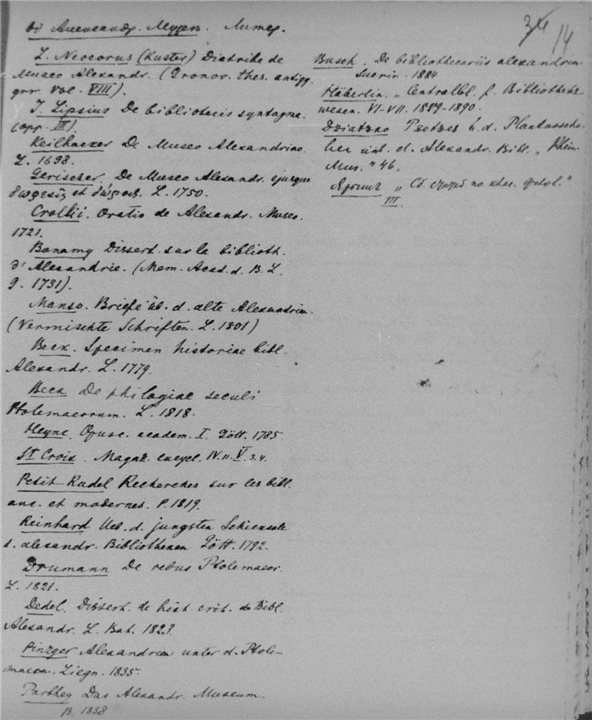 Александр. Музей. Литер.
14
L. Neocorus (Kuster) Diatribe de
Museo Alexandr. (Gronov. thes. antiqq.
grr. Vol. VIII).
J. Lipsius De bibliothecis syntagma.
(opp. III)
Keilhacker De Museo Alexandrino.
L. 1698.
Gerischer. De Museo Alexandr. ejusque
L. 1750.
Crollii. Oratio de Alexandr. Museo.
1721.
Bonamy Dissert. sur la biblioth.
d'Alexandrie. (Mem. Acad. d. B. L.
9. 1731).
Manso. Briefe üb. d. alte Alexandrien.
(Vermischte Schriften. L. 1801)
Beck. Specimen historiae bibl.
Alexandr. L. 1779.
Beck De philogiae seculi
Ptolemaeorum. L. 1818.
Heyne. Opusc. academ. I. Gött. 1785
St Croix. Magaz. encycl. IV. n. V. 3.4.
Petit-Radel Recherches sur les bibl.
anc. et modernes. P. 1819.
Reinhard Ueb. d. jungsten Schicksale
d. alexandr. Bibliotheken Gött. 1792.
Drumann De rebus Ptolemaeor.
L. 1821.
Dedel. Dissert. de hist. crit. de Bibl.
Alexandr. L. Bat. 1823.
Pinzger Alexandrien unter d. Ptole-
maeern. Liegn. 1835.
Parthey Das Alexandr. Museum.
B. 1838
Busch. De bibliothecariis alexandrin.
Suerin. 1884
Häberlin. „Centralbl. f. Bibliotheks-
wesen. VI-VII. 1889-1890.
Dziatzko Tzetzes ü. d. Plautusscho-
lien übl. d. Alexandr. Bibl. „Rhein.
Mus." 46.
"Сб. статей по клас. филол."
III.